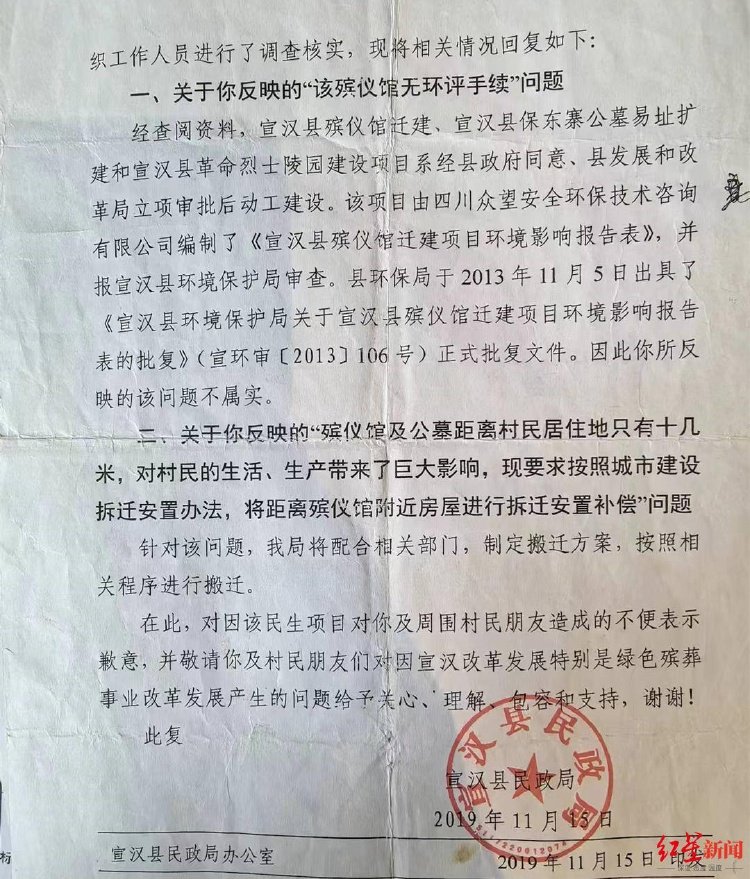 织工作人员进行了调查核实，现将相关情况回复如下：
一、关于你反映的“该殡仪馆无环评手续”问题
经查阅资料，宣汉县殡仪馆迁建、宣汉县保东寨公墓易址扩
建和宣汉县革命烈士陵园建设项目系经县政府同意、县发展和改
革局立项审批后动工建设。该项目由四川众望安全环保技术咨询
有限公司编制了《宣汉县殡仪馆迁建项目环境影响报告表》，并
报宣汉县环境保护局审查。县环保局于2013年11月5日出具了
《宣汉县环境保护局关于宣汉县殡仪馆迁建项目环境影响报告
表的批复》（宣环审〔2013〕106号）正式批复文件。因此你所反
映的该问题不属实。
二、关于你反映的“殡仪馆及公墓距离村民居住地只有十几
米，对村民的生活、生产带来了巨大影响，现要求按照城市建设
拆迁安置办法，将距离殡仪馆附近房屋进行拆迁安置补偿”问题
针对该问题，我局将配合相关部门，制定搬迁方案，按照相
关程序进行搬迁。
在此，对因该民生项目对你及周围村民朋友造成的不便表示
歉意，并敬请你及村民朋友们对因宣汉改革发展特别是绿色殡葬
事业改革发展产生的问题给予关心、理解、包容和支持，谢谢！
此复
宣汉县民政局
宣汉县民政局
2019年11月15日
宣汉县民政局办公室
2019年11月15日印发
标
红星新闻